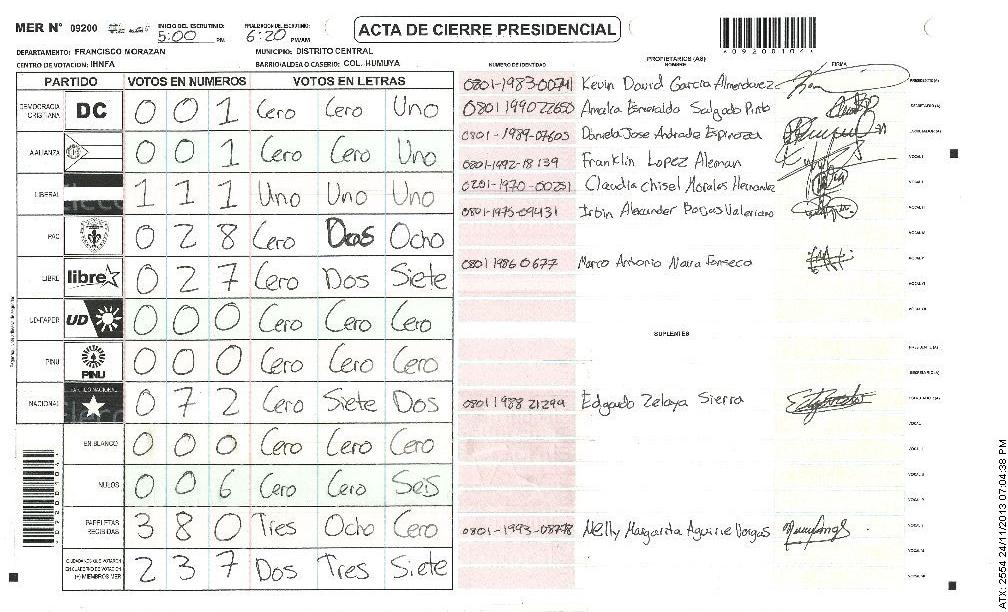 MER N° 09200 INICIO DEL ESCRUTINIO: 5:00 PM FINALIZACION DEL ESCRUTINIO: 6:20 PM/AM
ACTA DE CIERRE PRESIDENCIAL
DEPARTAMENTO: FRANCISCO MORAZAN MUNICIPIO: DISTRITO CENTRAL
CENTRO DE VOTACION: IHNFA BARRIO/ALDEA O CASERIO: COL. HUMUYA
PARTIDO VOTOS EN NUMEROS VOTOS EN LETRAS
DEMOCRACIA CRISTIANA DC 0 0 1 Cero Cero Uno
AALIANZA 0 0 1 Cero Cero Uno
LIBERAL 1 1 1 Uno Uno Uno
PAC 0 2 8 Cero Dos Ocho
LIBRE libre 0 2 7 Cero Dos Siete
UD-FAPER UD 0 0 0 Cero Cero Cero
PINU PINU 0 0 0 Cero Cero Cero
NACIONAL PARTIDO NACIONAL 0 7 2 Cero Siete Dos
EN BLANCO 0 0 0 Cero Cero Cero
NULOS 0 0 6 Cero Cero Seis
PAPELETAS RECIBIDAS 3 8 0 Tres Ocho Cero
CIUDADANOS QUE VOTARON EN CUADERNO DE VOTACION (+) MIEMBROS MER 2 3 7 Dos Tres Siete
PROPIETARIOS (AS)
NUMERO DE IDENTIDAD NOMBRE FIRMA
0801-1983-00741 Kevin David Garcia Almendarez PRESIDENTE(A)
0801199022650 Amalia Esmeralda Salgado Pinto SECRETARIO (A)
0801-1989-07603 Daniela Jose Andrade Espinoza ESCRUTADOR(A)
0801-1992-18139 Franklin Lopez Aleman VOCAL I
0201-1970-00251 Claudia Chisel Morales Hernandez
0801-1975-09431 Irbin Alexander Rojas Valeriano
080119860677 Marco Antonio Nava Fonseca
SUPLENTES
PRESIDENTE(A)
SECRETARIO(A)
0801198821299 Edgardo Zelaya Sierra
0801-1993-08778 Nelly Margarita Aguirre Vargas
ATX: 2554 24/11/2013 07:04:38 PM